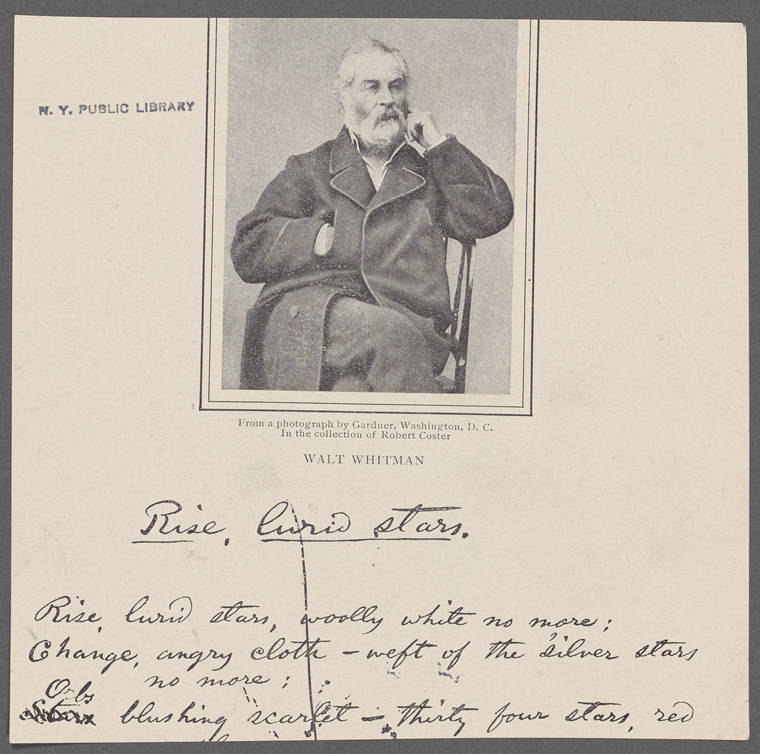 N. Y. PUBLIC LIBRARY
From a photograph by Gardner, Washington, D. C.
In the collection of Robert Coster
WALT WHITMAN
Rise, lurid stars.
Rise, lurid stars, woolly white no more;
Change, angry cloth – weft of the silver stars
no more;
Orbs
blushing scarlet – thirty four stars, red